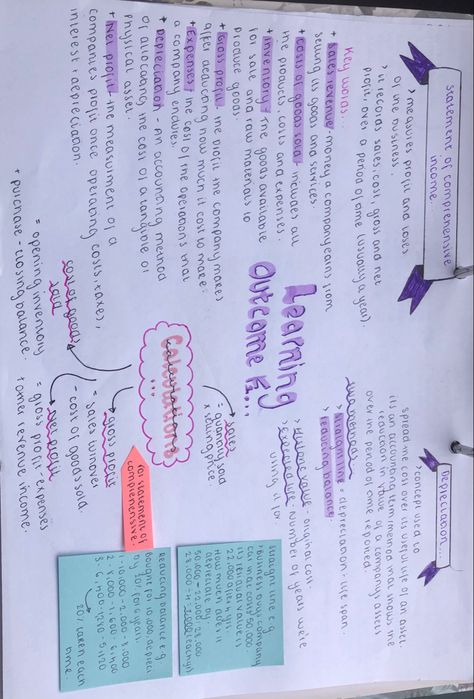 Statement of comprehensive
income.
> measures profit and losses
of the business.
> it records sales, cost, gross and net
profit over a period of time (usually a year)
Key words:
+ Sales revenue - money a company earns from
selling its goods and services.
+ Costs of goods sold - includes all
the product costs and expenses.
+ Inventory - The goods available
for sale and raw materials to
produce goods.
+ Gross profit - the profit the company makes
after deducting how much it cost to make.
+ Expenses - the cost of the operations that
a company endures.
+ Depreciation - An accounting method
of allocating the cost of a tangible or
Physical asset.
+ Net profit - the measurement of a
companies profit once operating costs, taxes,
interest + depreciation.
Learning
Outcome F1...
Depreciation...
> concept used to
spread the cost over its useful life of an asset.
its an accounting method that shows the
reduction in value of a company's assets
over the period of time reported.
> Straight line = depreciation ÷ life span.
> Reducing balance
original cost.
- number of years we're
using it for.
Calculations
...
Sales
= quantity sold
x selling price
gross profit
= sales turnover
- cost of goods sold.
net profit
= gross profit - expenses
+ other revenue income.
cost of goods
sold
= opening inventory
+ purchase - closing balance.
For statement of
comprehensive!
Straight line e.g
Business buys company
car that costs 50,000.
its residual value is
22,000 after 4 yrs.
How much does it
depreciate?
50,000 - 22,000 = 28,000
Reducing balance e.g
bought for 10,000, deprec
by 20% for 6 years.
1 - 10,000 - 2,000 = 8,000
2 - 8,000 - 1,600 = 6,400
3 - 6,400 - 1,280 = 5,120
20% taken each
time.